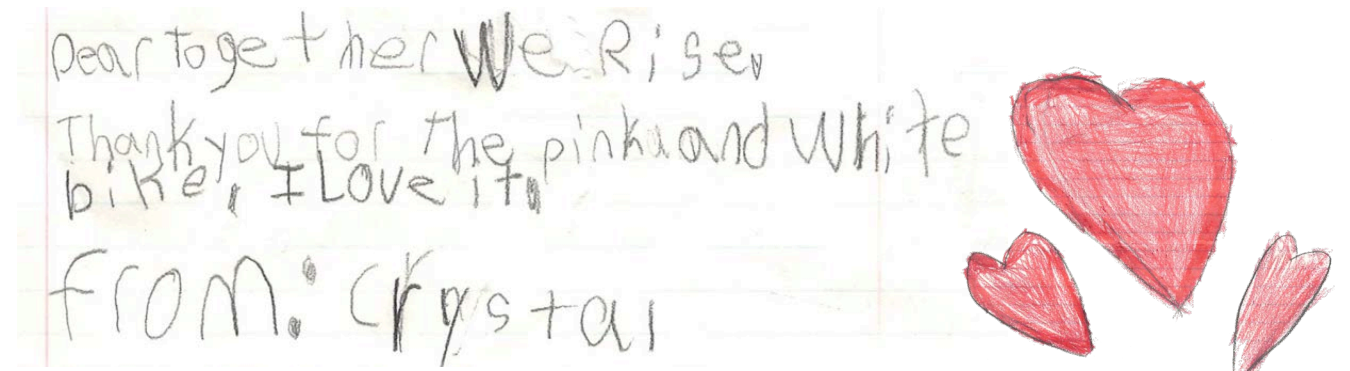 Dear Together We Rise,
Thank you for The pink and White
bike, I Love it.
from: Crystal